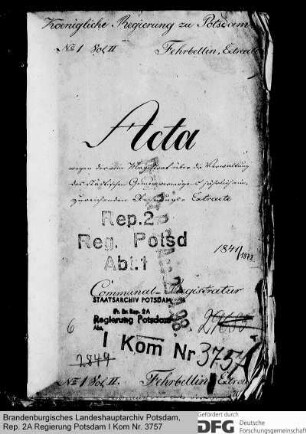 Koenigliche Regierung zu Potsdam
No 1 Vol II Fehrbellin, Extracte
Acta
wegen der dem Magistrat über die Verwaltung
des Städtischen
Extracte
Rep.2
Reg. Potsd
Abt.1
1849
Communal-Registratur
STAATSARCHIV POTSDAM
Pr. Br. Rep. 2A
Regierung Potsdam
Abt.
I Kom Nr. 3757
6
2849
No 1 Vol. II. Fehrbellin, Extracte
Brandenburgisches Landeshauptarchiv Potsdam,
Rep. 2A Regierung Potsdam I Kom Nr. 3757
Gefördert durch
DFG Deutsche
Forschungsgemeinschaft